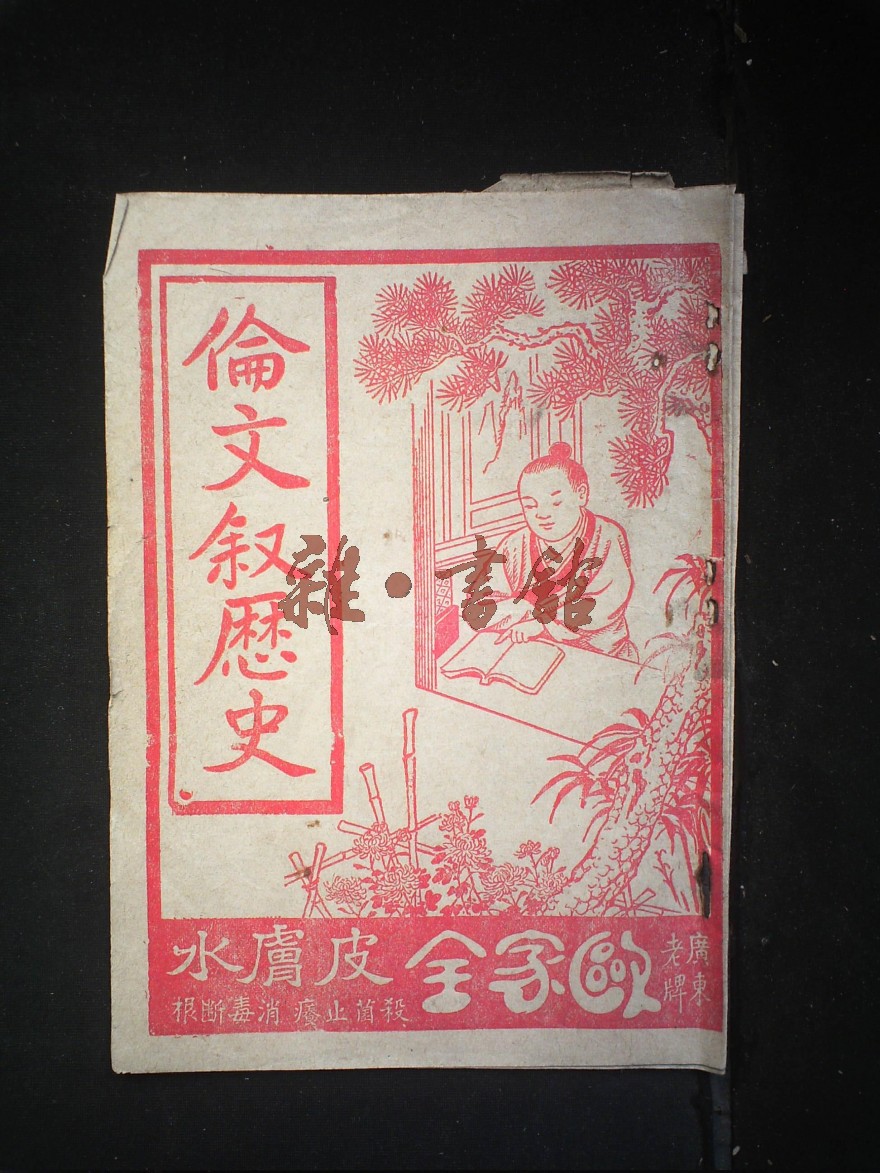 倫文叙歷史
雜·書館
廣東
老牌
歐家全皮膚水
殺菌止癢消毒斷根